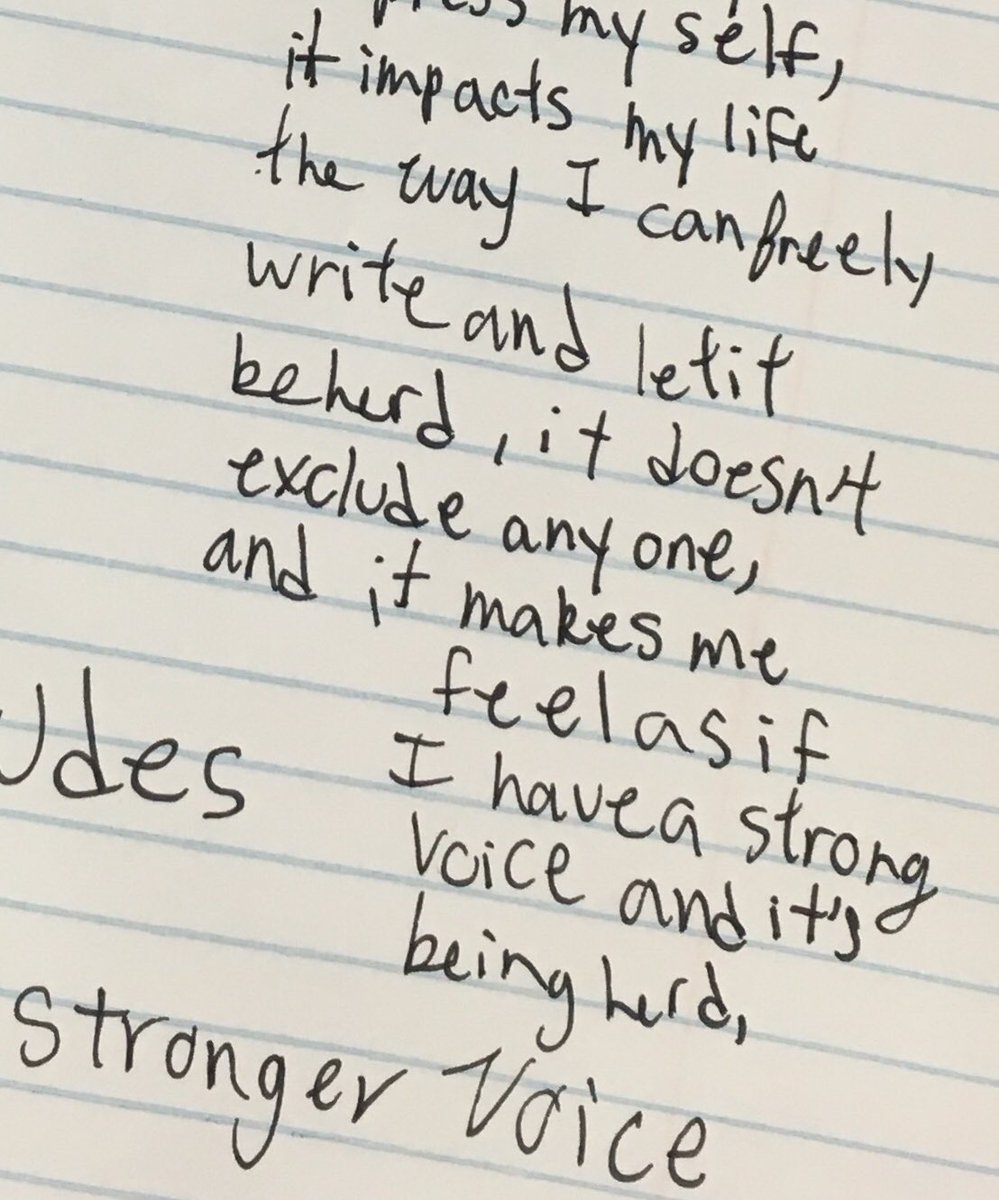 my self,
it impacts my life
the way I can freely
write and let it
be herd, it doesn't
exclude anyone,
and it makes me
feel as if
I have a strong
voice and it's
being herd,
Stronger Voice